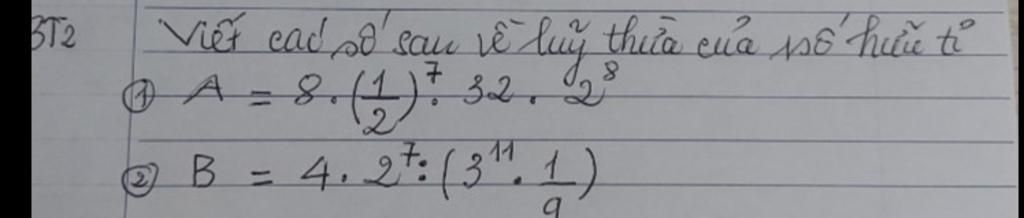 BT2 Viết các số sau về luỹ thừa của số hữu tỉ
① A = 8 . (1/2)^7 . 32 . 2^8
② B = 4 . 2^7 : (3^11 . 1/9)